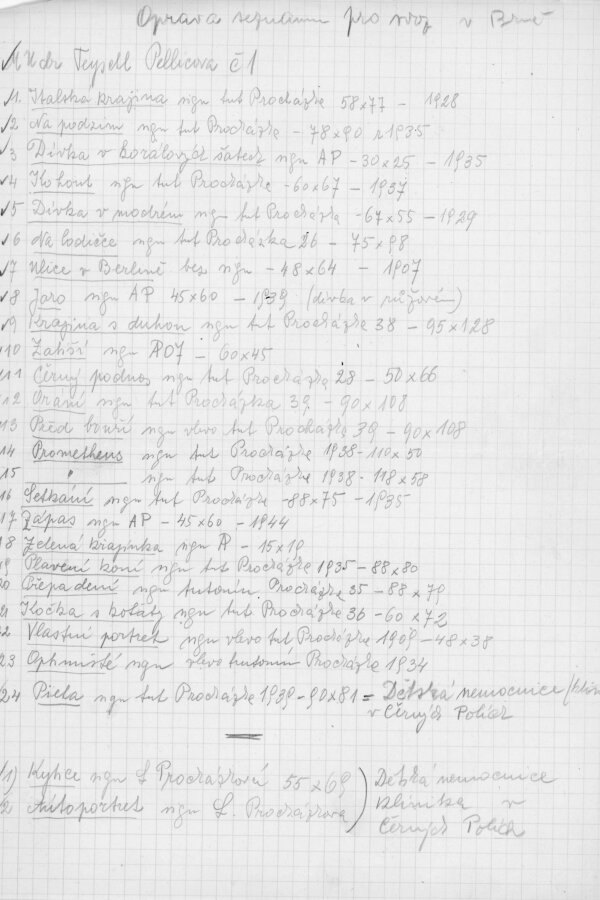 Oprava seznamu pro svoz v Brně
MUdr Teyschl Pellicova č 1
1. Italská krajina sign tut Procházka 58x77 – 1928
2 Na podzim sign tut Procházka – 78x90 r 1935
3 Dívka v korálových šatech sign AP – 30x25 – 1935
4 Kohout sign tut Procházka – 60x67 – 1937
5 Dívka v modrém sign tut Procházka – 67x55 – 1929
6 Na lodičce sign tut Procházka 26 – 75x98
7 Ulice v Berlíně bez sign – 48x64 – 1907
8 Jaro sign AP 45x60 – 1939 (dívka v růžovém)
9 Krajina s duhou sign tut Procházka 38 – 95x128
10 Zátiší sign 07 – 60x45
11 Černý podnos sign tut Procházka 28 – 50x66
12 Orání sign tut Procházka 39 – 90x108
13 Před bouří sign vlevo tut Procházka 39 – 90x108
14 Prometheus sign tut Procházka 1938 – 110x50
15 " sign tut Procházka 1938 – 118x58
16 Setkání sign tut Procházka – 88x75 – 1935
17 Zápas sign AP – 45x60 – 1944
18 Zelená krajinka sign – 15x19
19 Plavení koní sign tut Procházka 1935 – 88x80
20 Přepadení sign tutonín Procházka 35 – 88x79
21 Kočka s koťaty sign tut Procházka 36 – 60x72
22 Vlastní portret sign vlevo tut Procházka 1909 – 48x38
23 Optimisté sign vlevo tutonín Procházka 1934
24 Pieta sign tut Procházka 1939 – 90x81 = Dětská nemocnice
v Černých Polích
1) Kytice sign L Procházková 55x69
2 Autoportret sign L. Procházková
Dětská nemocnice
klinika v
Černých Polích